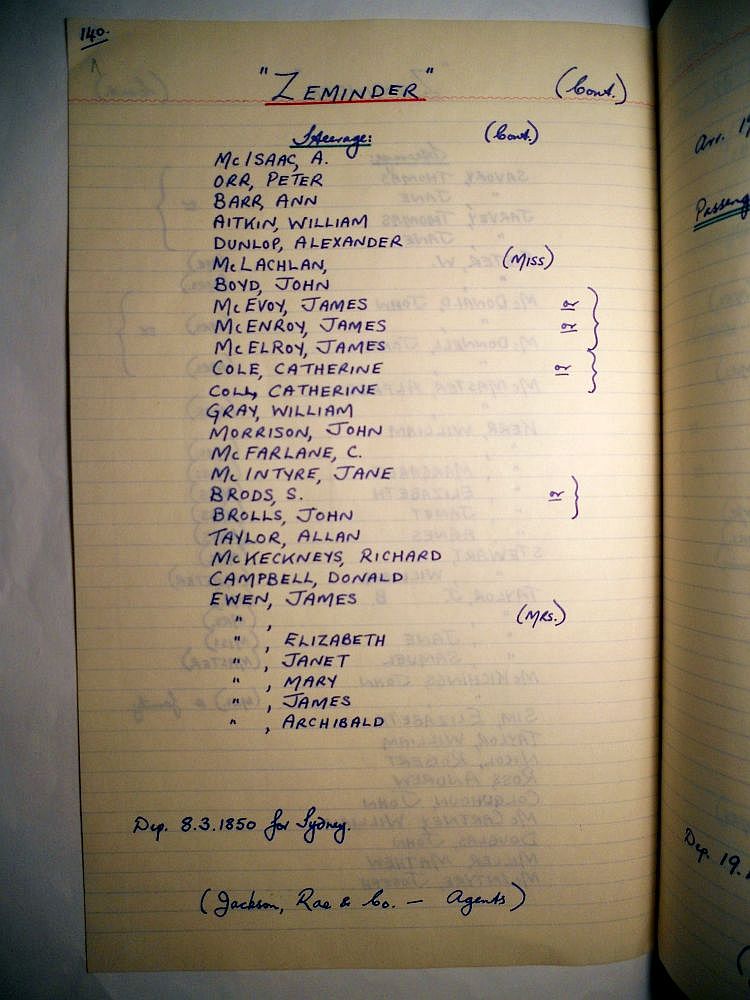 140.
"ZEMINDER" (Cont.)
Steerage: (Cont.)
McISAAC, A.
ORR, PETER
BARR, ANN
AITKIN, WILLIAM
DUNLOP, ALEXANDER
McLACHLAN, (MISS)
BOYD, JOHN
McEVOY, JAMES or
McENROY, JAMES or
McELROY, JAMES
COLE, CATHERINE or
COLL, CATHERINE
GRAY, WILLIAM
MORRISON, JOHN
McFARLANE, C.
McINTYRE, JANE
BRODS, S. or
BROLLS, JOHN
TAYLOR, ALLAN
McKECKNEYS, RICHARD
CAMPBELL, DONALD
EWEN, JAMES
" , (MRS.)
" , ELIZABETH
" , JANET
" , MARY
" , JAMES
" , ARCHIBALD
Dep. 8.3.1850 for Sydney.
(Jackson, Rae & Co. — Agents)
Arr.
Passeng
Dep. 19.